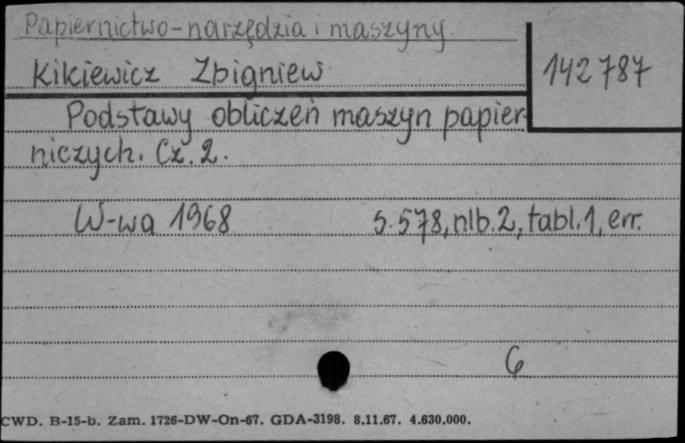 Papiernictwo-narzędzia i maszyny.
Kikiewicz Zbigniew
142787
Podstawy obliczeń maszyn papier-
niczych. Cz. 2.
W-wa 1968 s. 578, nlb. 2, tabl. 1, err.
6
CWD. B-15-b. Zam. 1726-DW-On-67. GDA-3198. 8.11.67. 4.630.000.